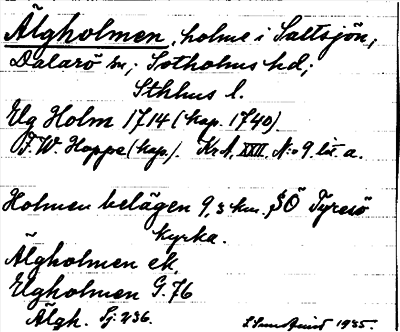 Älgholmen, holme i Saltsjön,
Dalarö sn; Sotholms hd;
Sthlms l.
Elg Holm 1714 (kop. 1740).
J. W. Hoppe (kop.). Kr. A. XXII. N:o 9 lit. a.
Holmen belägen 9,3 km. SÖ Tyresö
kyrka.
Älgholmen ek.
Elgholmen G. 76
Älgh. Sj: 236.
1935